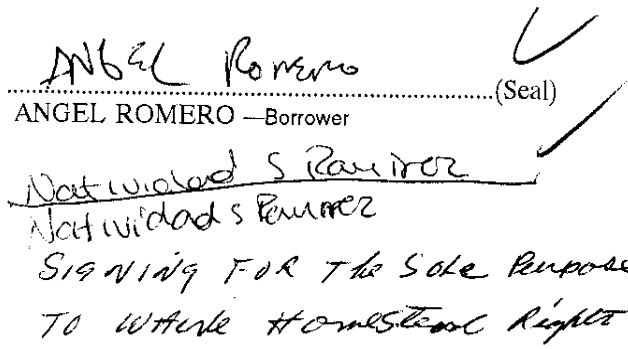 ANGEL Romero
(Seal)
ANGEL ROMERO —Borrower
Natividad S Ramirez
Natividad S Ramirez
SIGNING FOR The Sole Purpose
TO WAIVE Homestead Rights